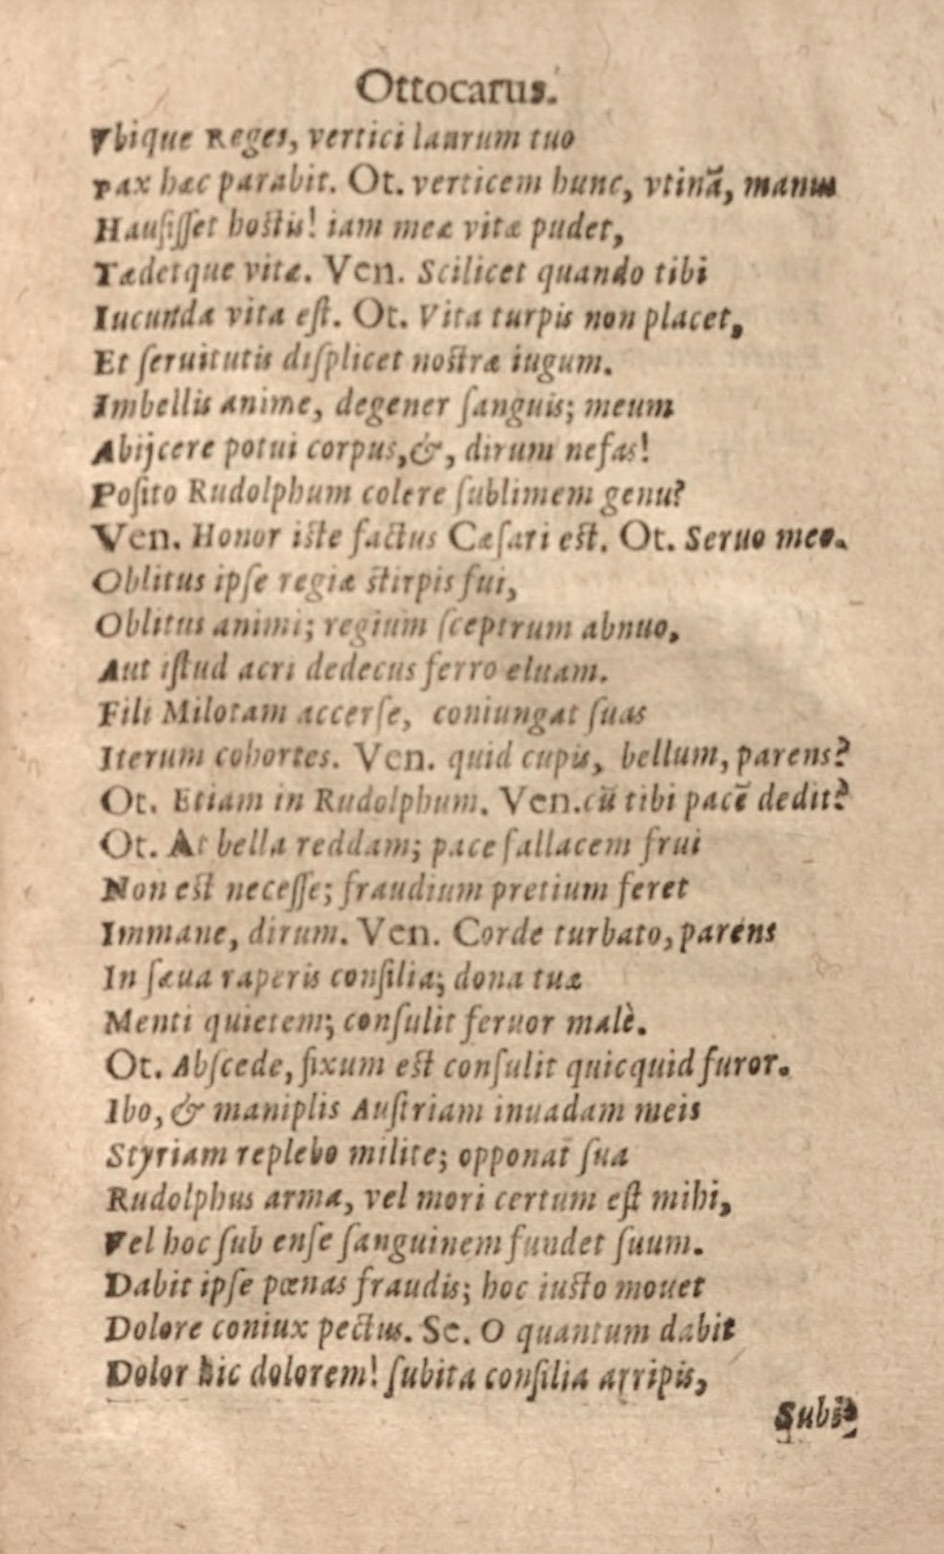 Ottocarus.
Vbique Reges, vertici laurum tuo
Pax hæc parabit. Ot. verticem hunc, vtinā, manus
Hauſiſſet hostis! iam meæ vitæ pudet,
Tædetque vitæ. Ven. Scilicet quando tibi
Iucunda vita eſt. Ot. Vita turpis non placet,
Et ſeruitutis diſplicet nostræ iugum.
Imbellis anime, degener ſanguis; meum
Abijcere potui corpus, &, dirum nefas!
Poſito Rudolphum colere ſublimem genu?
Ven. Honor iste factus Cæſari est. Ot. Seruo meo.
Oblitus ipſe regiæ stirpis fui,
Oblitus animi; regium ſceptrum abnuo,
Aut iſtud acri dedecus ferro eluam.
Fili Milotam accerſe, coniungat ſuas
Iterum cohortes. Ven. quid cupis, bellum, parens?
Ot. Etiam in Rudolphum. Ven. cū tibi pacē dedit?
Ot. At bella reddam; pace fallacem frui
Non est neceſſe; fraudium pretium feret
Immane, dirum. Ven. Corde turbato, parens
In ſæua raperis conſilia; dona tuæ
Menti quietem; conſulit feruor malè.
Ot. Abſcede, fixum est conſulit quicquid furor.
Ibo, & maniplis Auſtriam inuadam meis
Styriam replebo milite; opponat ſua
Rudolphus arma, vel mori certum eſt mihi,
Vel hoc ſub enſe ſanguinem fundet ſuum.
Dabit ipſe pœnas fraudis; hoc iusto mouet
Dolore coniux pectus. Se. O quantum dabit
Dolor hic dolorem! ſubita conſilia arripis,